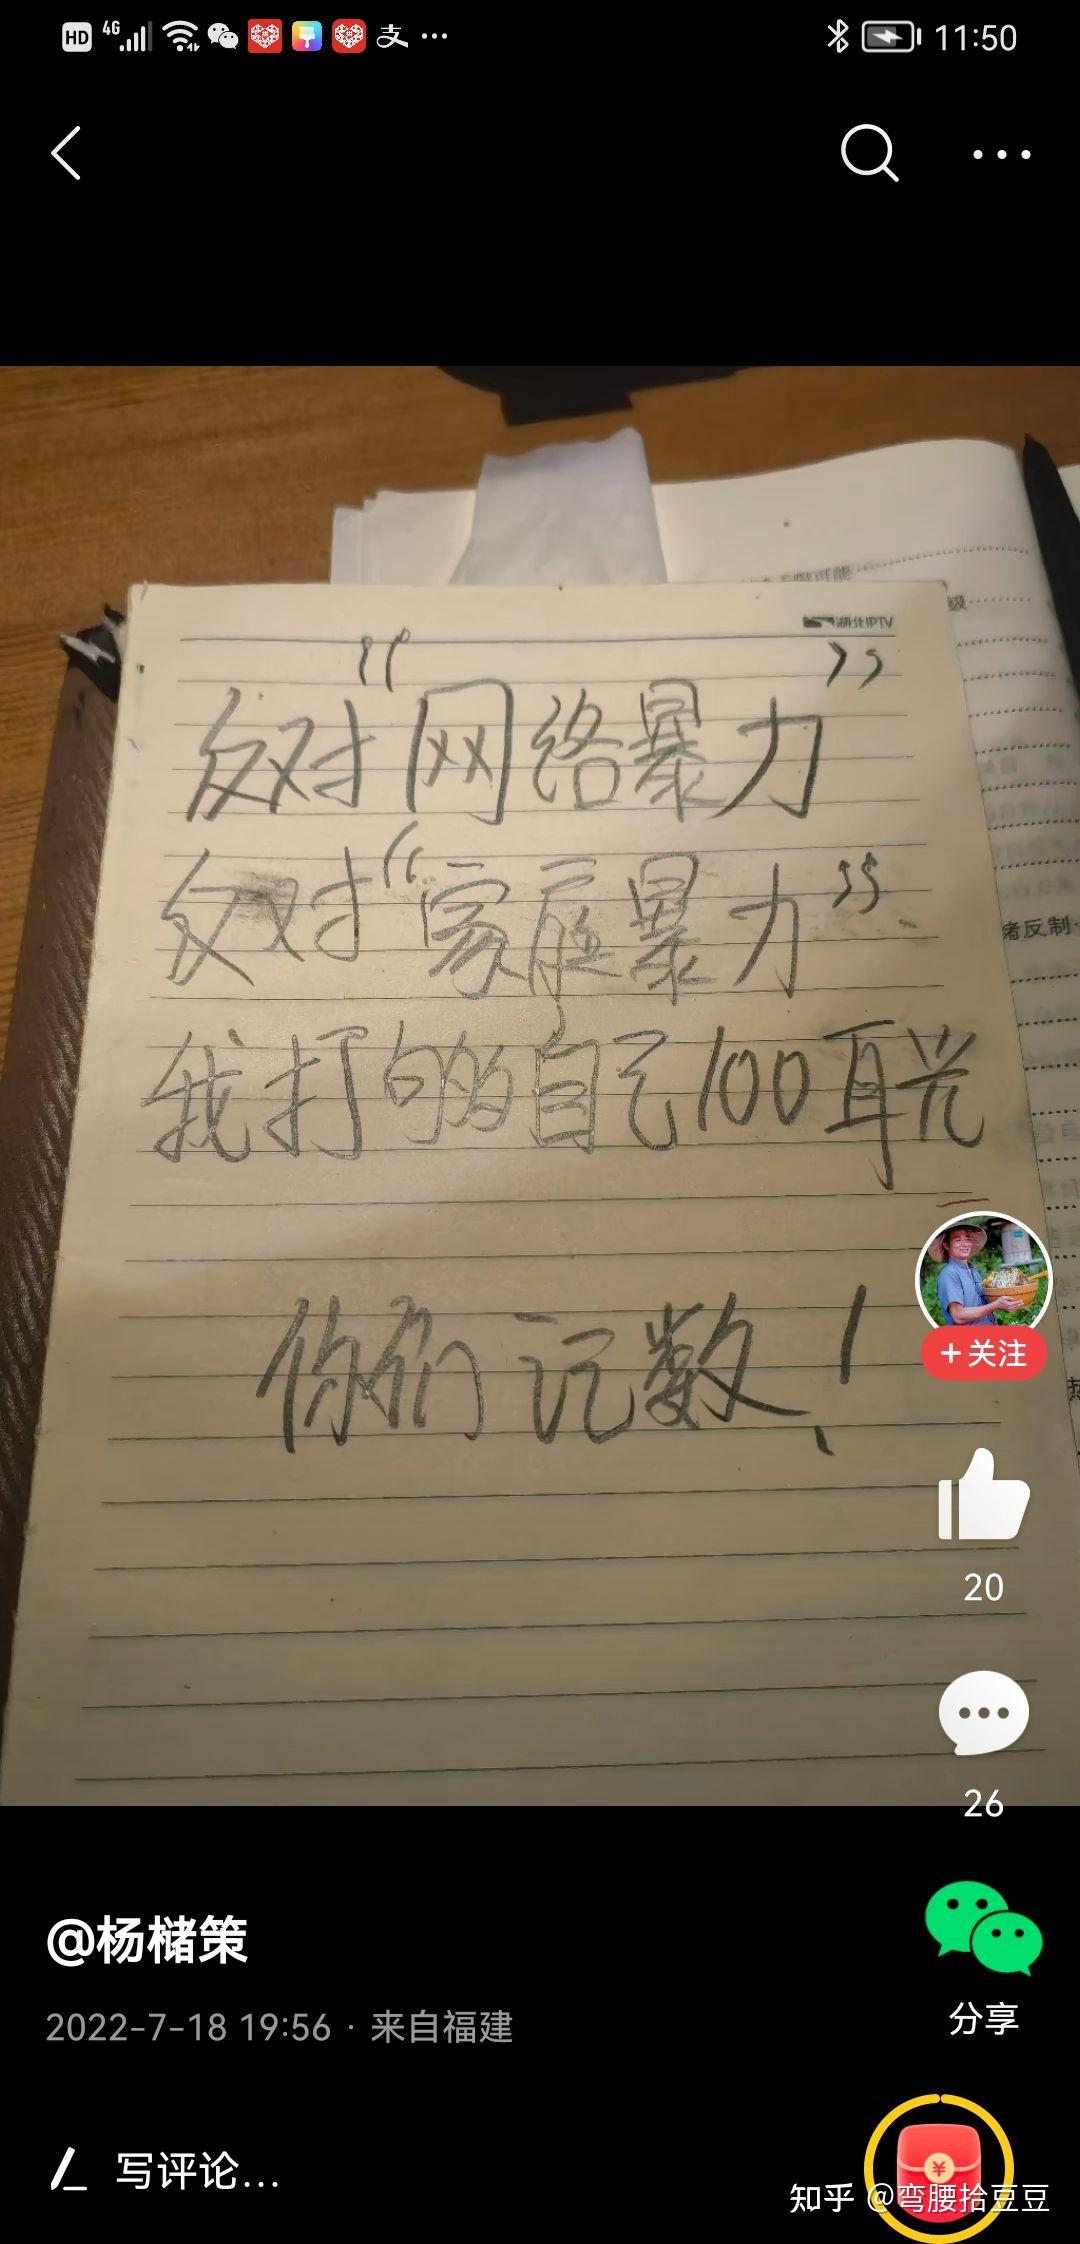 HD 4G 支 11:50
湖北IPTV
反对“网络暴力”
反对“家庭暴力”
我打的自己100耳光
你们记数！
诸反制
+关注
20
26
@杨槠策
2022-7-18 19:56 · 来自福建
分享
写评论...
¥
知乎 @弯腰拾豆豆